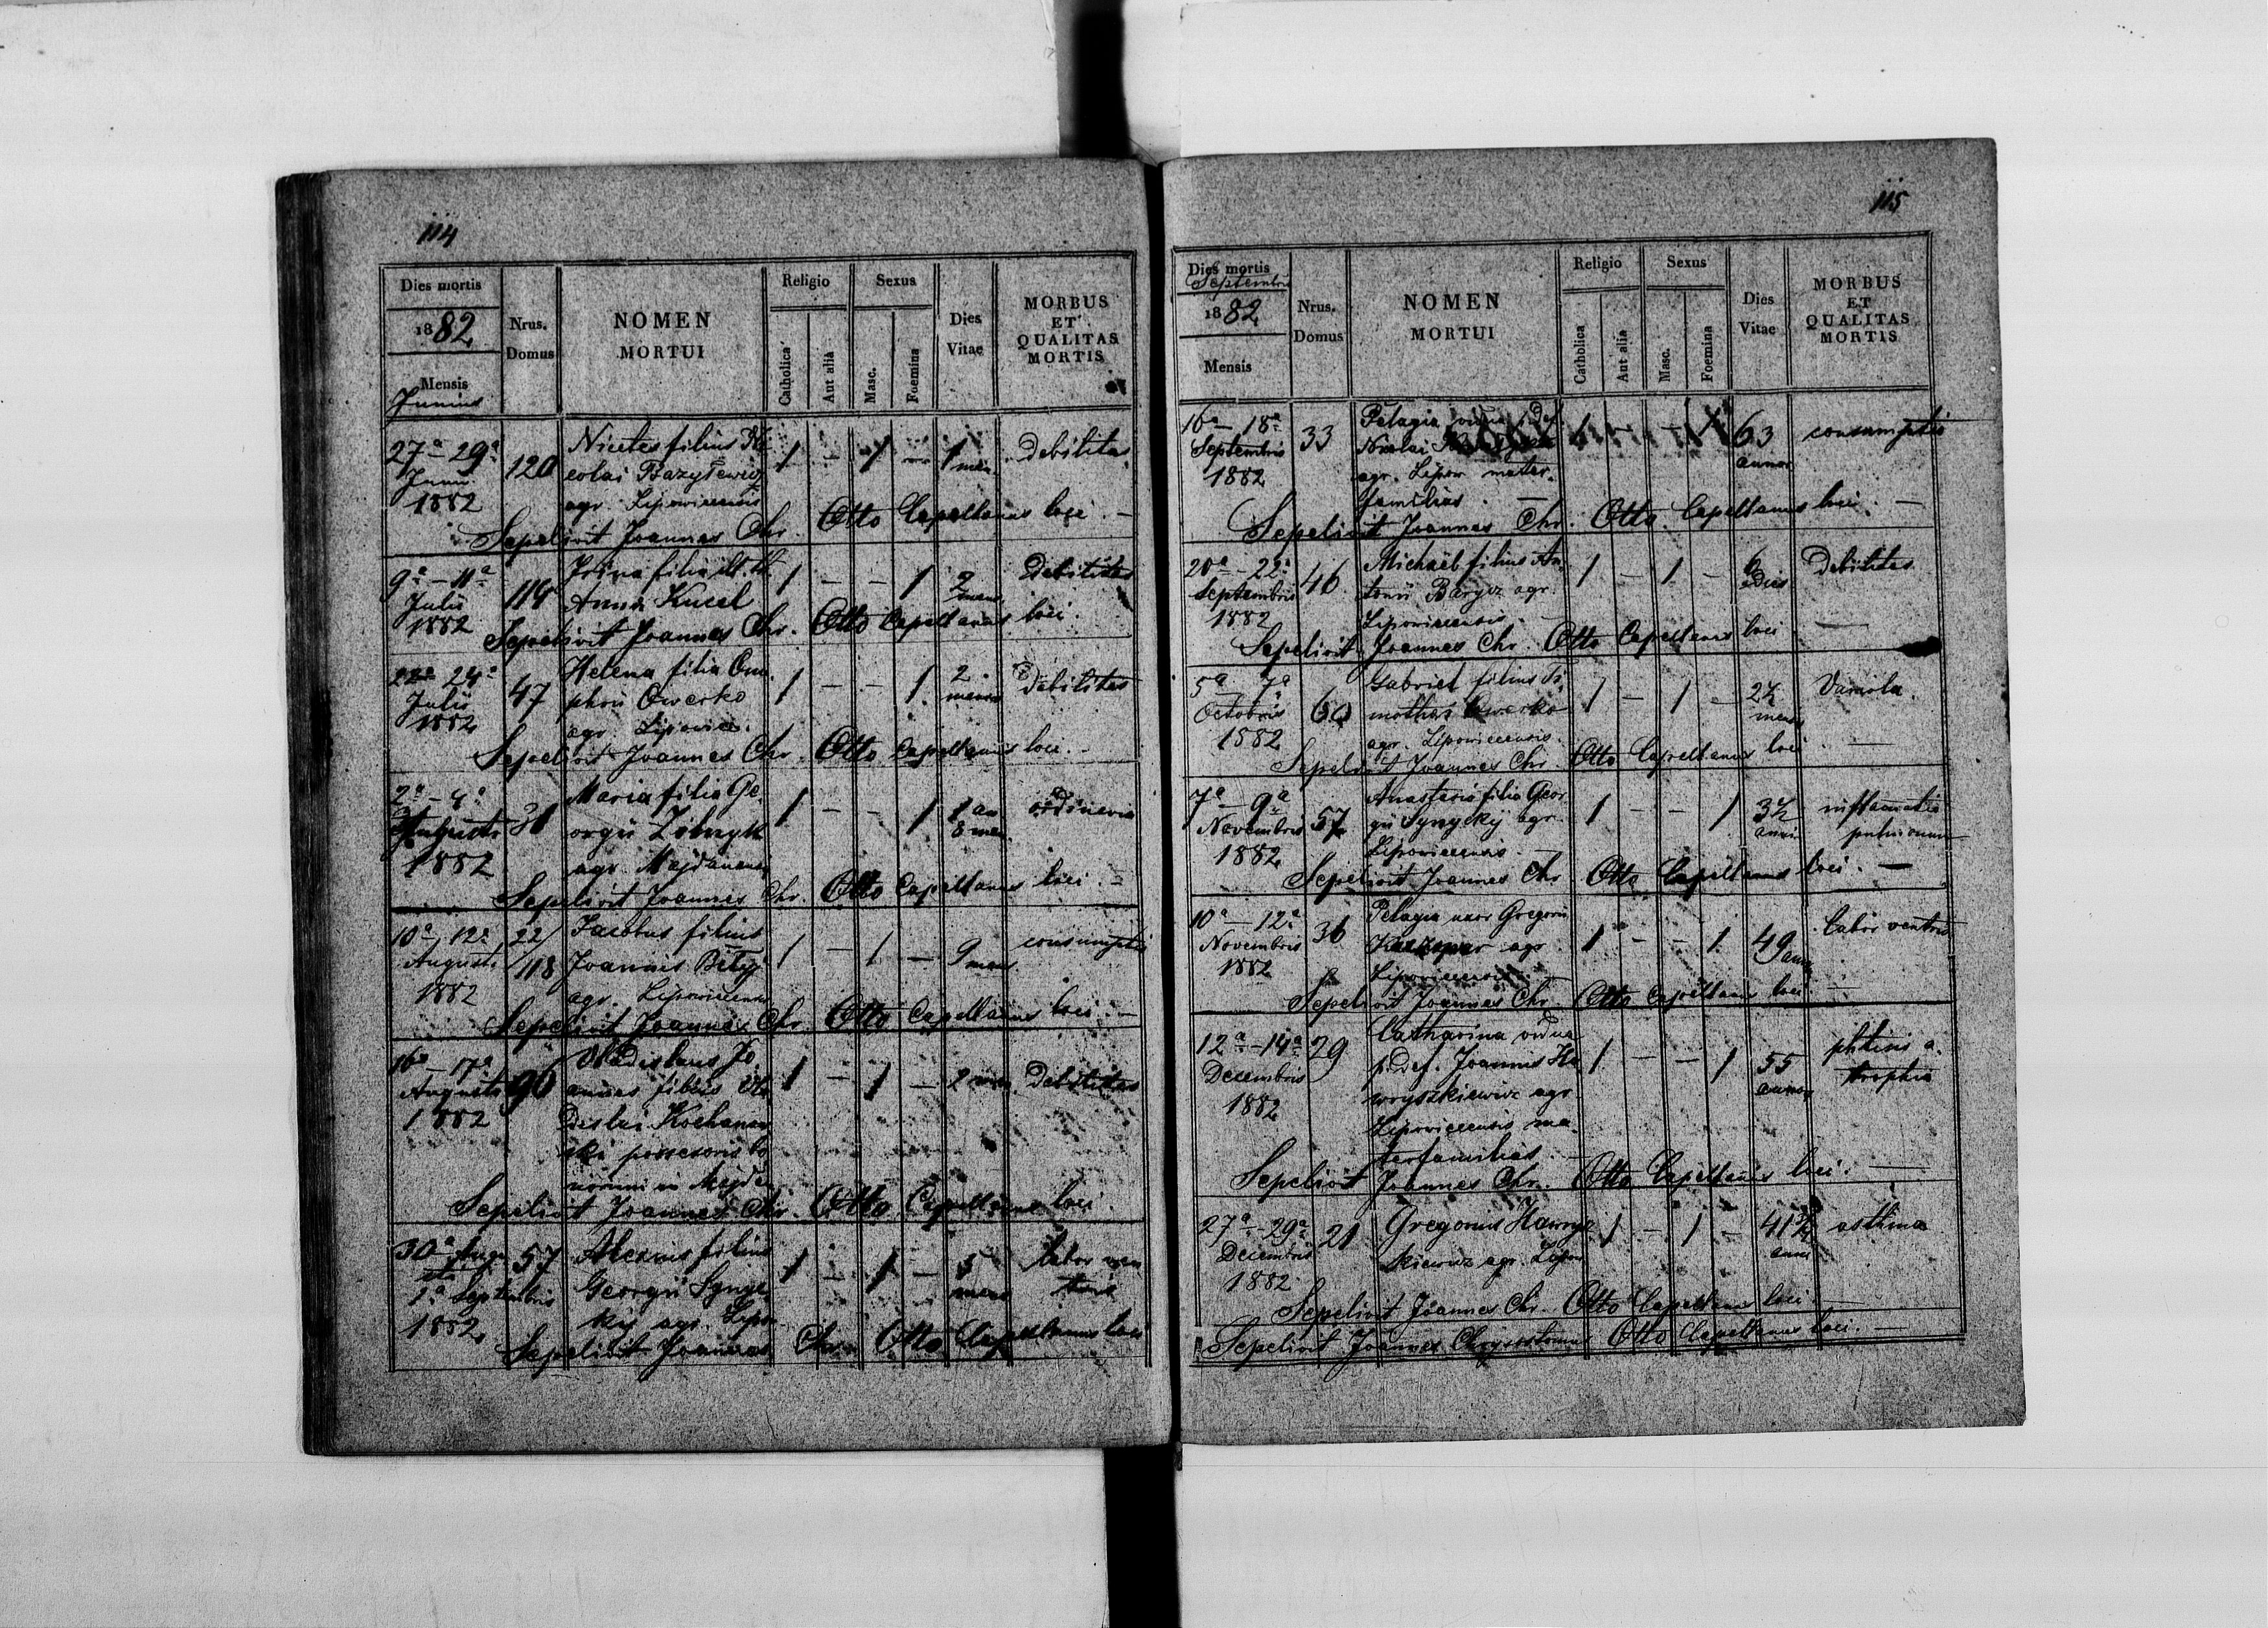 114
Dies mortis
1882
Mensis
Junius
Nrus.
Domus
NOMEN
MORTUI
Religio
Catholica
Aut alia
Sexus
Masc.
Foemina
Dies
Vitae
MORBUS
ET
QUALITAS
MORTIS
27a 29a
Junii
1882
120
Nicetes filius Ni
colai Bazylewicz
agr. Lipowicensis
1 - 1 - 1
mens.
Debilitas
Sepelivit Joannes Chr. Otto Capellanus loci. -
9a - 11a
Julii
1882
119
filia ill. M.
Anna Kucel
1 - - 1 2
mens
Debilitas
Sepelivit Joannes Chr. Otto Capellanus loci.
22a 24a
Julii
1882
47
Helena filia Onu
phrii Owerko
agr. Lipowice.
1 - - 1 2
mens
Debilitas
Sepelivit Joannes Chr. Otto Capellanus loci. -
2a - 4a
Augusti
1882
31
Maria filia Ge
orgii
agr. Majdanensis
1 - - 1 1 an
8 men
ordinaria
Sepelivit Joannes Chr. Otto Capellanus loci. -
10a 12a
Augusti
1882
22/
118
Jacobus filius
Joannis
agr. Lipowicensis
1 - 1 - 9
mens
consumptio
Sepelivit Joannes Chr. Otto Capellanus loci. -
16a - 17a
Augusti
1882
96
Vladislaus Jo
annes filius Vla
dislai Kochanow
ski possesoris bo
norum in Majda
1 - 1 - 2 men
Debilitas
Sepelivit Joannes Chr. Otto Capellanus loci
30a Augu
sti
1a Septembris
1882
57
Alexius filius
Georgii Synyc
kij agr. Lipo
1 - 1 - 5
mens
labor ven
tris
Sepelivit Joannes Chr. Otto Capellanus loci
115
Dies mortis
Septembris
1882
Mensis
Nrus.
Domus
NOMEN
MORTUI
Religio
Catholica
Aut alia
Sexus
Masc.
Foemina
Dies
Vitae
MORBUS
ET
QUALITAS
MORTIS
16a - 18a
Septembris
1882
33
Pelagia vidua p. def.
Nicolai
agr. Lipow mater
familias. -
63
annor
consumptio
Sepelivit Joannes Chr. Otto Capellanus loci. -
20a - 22a
Septembris
1882
46
Michaël filius An
tonii Barycz agr.
Lipowicensis. -
1 - 1 - 6
dies
Debilitas
Sepelivit Joannes Chr. Otto Capellanus loci -
5a 7a
Octobris
1882
60
Gabriel filius Ti
mothei Owerko
agr. Lipowicensis.
1 - 1 - 2½
mens
Variola.
Sepelivit Joannes Chr. Otto Capellanus loci. -
7a - 9a
Novembris
1882
57
Anastasia filia Geor
gii Synyckij agr.
Lipowicensis -
1 - - 1 3½
anni
inflamatio
pulmonum
Sepelivit Joannes Chr Otto Capellanus loci. -
10a - 12a
Novembris
1882
36
Pelagia uxor Gregorii
agr
Lipowicensis
1 - - 1 49 annor
labor ventris
Sepelivit Joannes Chr. Otto Capellanus loci -
12a - 14a
Decembris
1882
29
Catharina vidua
p. def. Joannis Ha
wryszkiewicz agr
Lipowicensis ma
terfamilias. -
1 - - 1 55
annor
phtisis a
trophia
Sepelivit Joannes Chr. Otto Capellanus loci. -
27a - 29a
Decembris
1882
21
Gregorius Hawrysz
kiewicz agr. Lipow
1 - 1 - 41
anni
asthma
Sepelivit Joannes Chr. Otto Capellanus loci
Sepelivit Joannes Chrysostomus Otto Capellanus loci. -